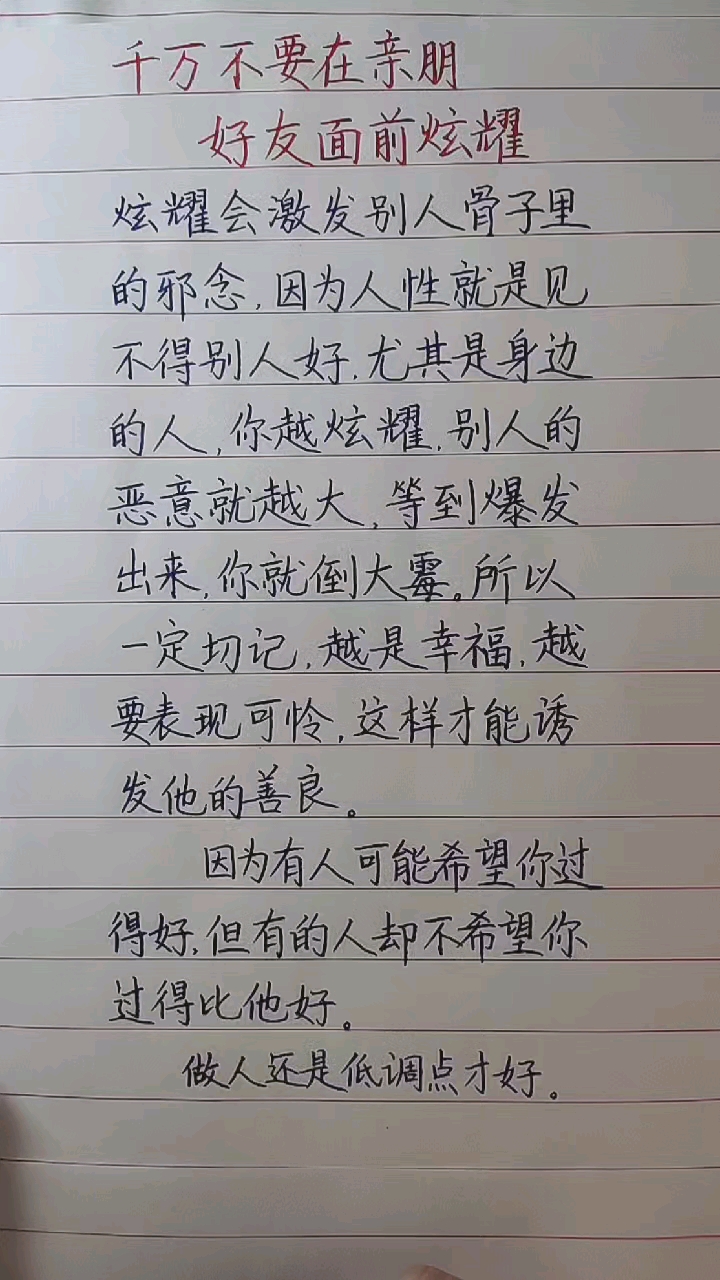 千万不要在亲朋
好友面前炫耀
炫耀会激发别人骨子里
的邪念,因为人性就是见
不得别人好,尤其是身边
的人,你越炫耀,别人的
恶意就越大,等到爆发
出来,你就倒大霉。所以
一定切记,越是幸福,越
要表现可怜,这样才能诱
发他的善良。
因为有人可能希望你过
得好,但有的人却不希望你
过得比他好。
做人还是低调点才好。